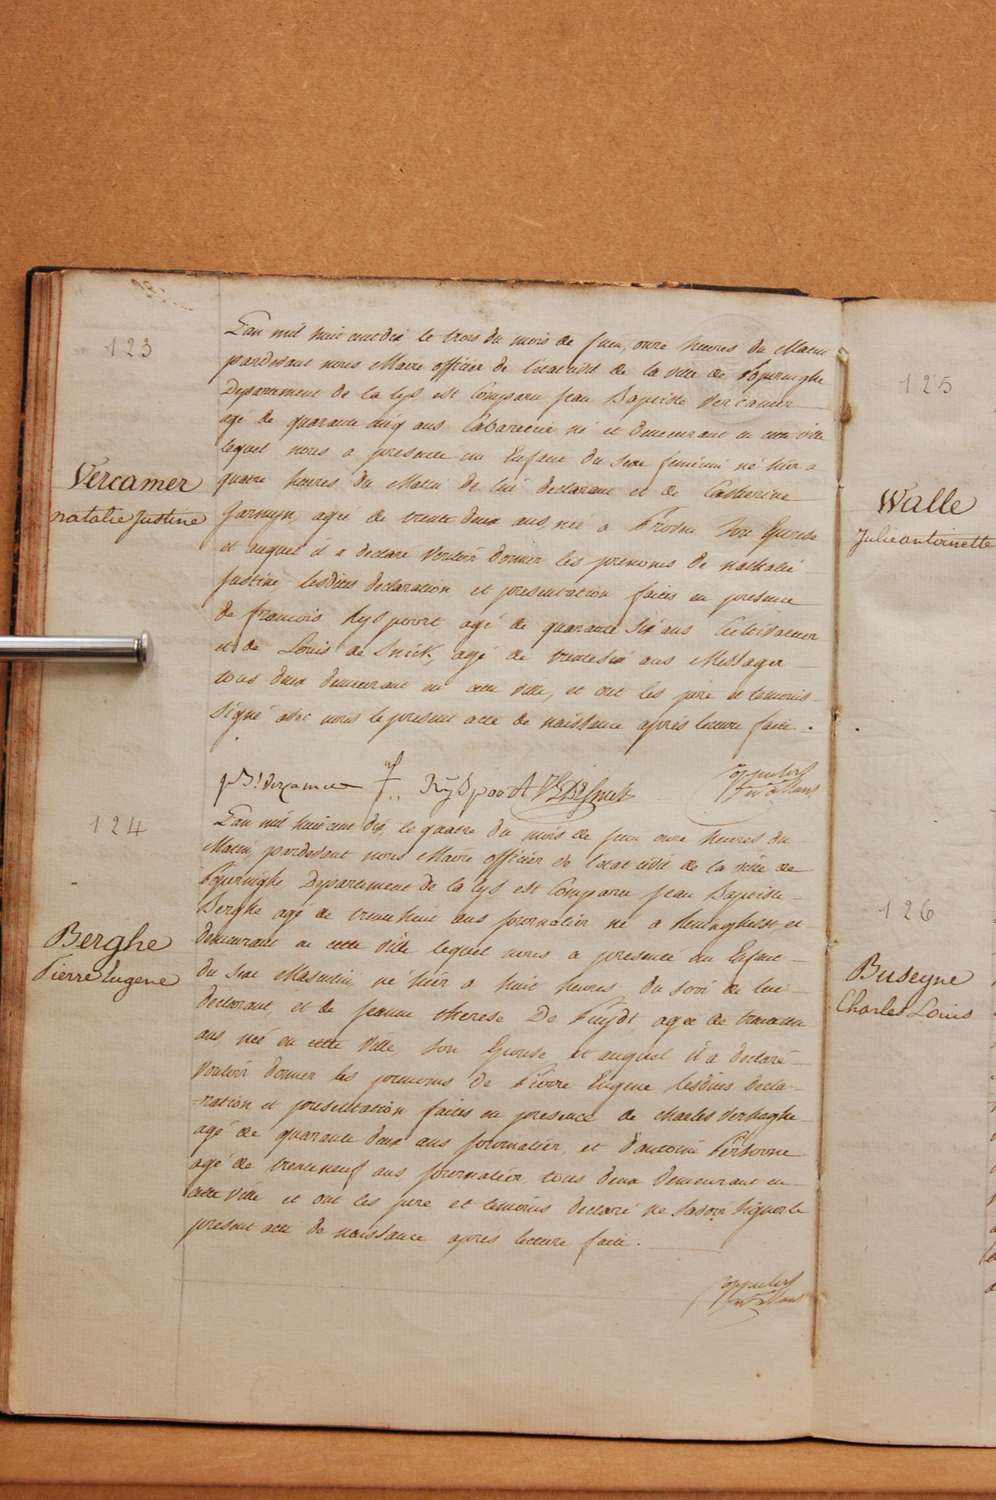 123
Vercamer
natalie Justine
L'an mil huit cent dix le trois du mois de Juin, onze heures du Matin
pardevant nous Maire officier de l'etat civil de la ville de Poperinghe
Departement de la Lys est Comparu Jean Baptiste Vercamer
agé de quarante cinq ans Cabaretier né et demeurant en cette ville
lequel nous a presenté un Enfant du sexe feminin né hier a
quatre heures du Matin de lui declarant et de Catherine
agée de trente deux ans née a Son Epouse
et auquel il a declaré vouloir donner les prenoms de nathalie
Justine lesdites declaration et presentation faites en presence
de françois Ryspoort agé de quarante six ans Cultivateur
et de Louis de Snick, agé de trente six ans Messager
tous deux demeurant en cette ville, et ont les pere et temoins
Signé avec nous le present acte de naissance après lecture faite.
Vercamer Ryspoort
124
Berghe
Pierre Eugene
L'an mil huit cent dix, le quatre du mois de Juin onze heures du
Matin, pardevant nous Maire officier de l'etat civil de la ville de
Poperinghe Departement de la Lys est Comparu Jean Baptiste
Berghe agé de trente huit ans Journalier né a et
demeurant en cette ville lequel nous a presenté un Enfant
du sexe Masculin, né hier a huit heures du soir de lui
declarant, et de Jeanne therese De Puydt, agée de
ans née en cette ville, son Epouse, et auquel il a declaré
vouloir donner les prenoms de Pierre Eugene lesdites decla-
ration et presentation faites en presence de charles Verhaghe
agé de quarante deux ans Journalier, et d'antoine Persoone
agé de trente neuf ans Journalier, tous deux demeurant en
cette ville et ont les pere et temoins declaré ne savoir signer le
present acte de naissance après lecture faite.
125
Walle
Julie antoinette
126
Buseyne
Charles Louis